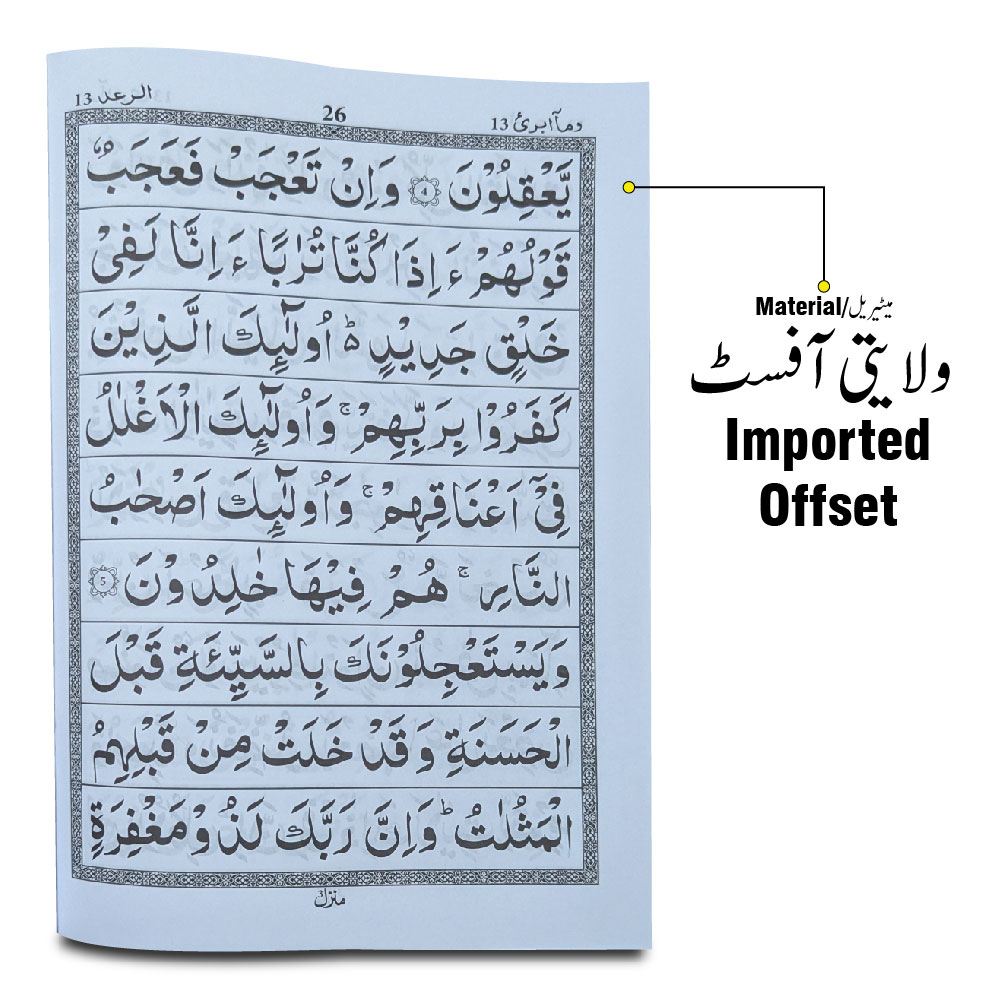 الرعد 13
26
وماابرئ 13
يَّعْقِلُوْنَ 4 وَاِنْ تَعْجَبْ فَعَجَبٌ
قَوْلُهُمْ ءَ اِذَا كُنَّا تُرٰبًا ءَ اِنَّا لَفِيْ
خَلْقٍ جَدِيْدٍ ۬ؕ اُولٰٓئِكَ الَّذِيْنَ
كَفَرُوْا بِرَبِّهِمْ ۚ وَاُولٰٓئِكَ الْاَغْلٰلُ
فِيْٓ اَعْنَاقِهِمْ ۚ وَاُولٰٓئِكَ اَصْحٰبُ
النَّارِ ۚ هُمْ فِيْهَا خٰلِدُوْنَ 5
وَيَسْتَعْجِلُوْنَكَ بِالسَّيِّئَةِ قَبْلَ
الْحَسَنَةِ وَقَدْ خَلَتْ مِنْ قَبْلِهِمُ
الْمَثُلٰتُ ؕ وَاِنَّ رَبَّكَ لَذُوْ مَغْفِرَةٍ
Material/میٹیریل
ولایتی آفسٹ
Imported
Offset